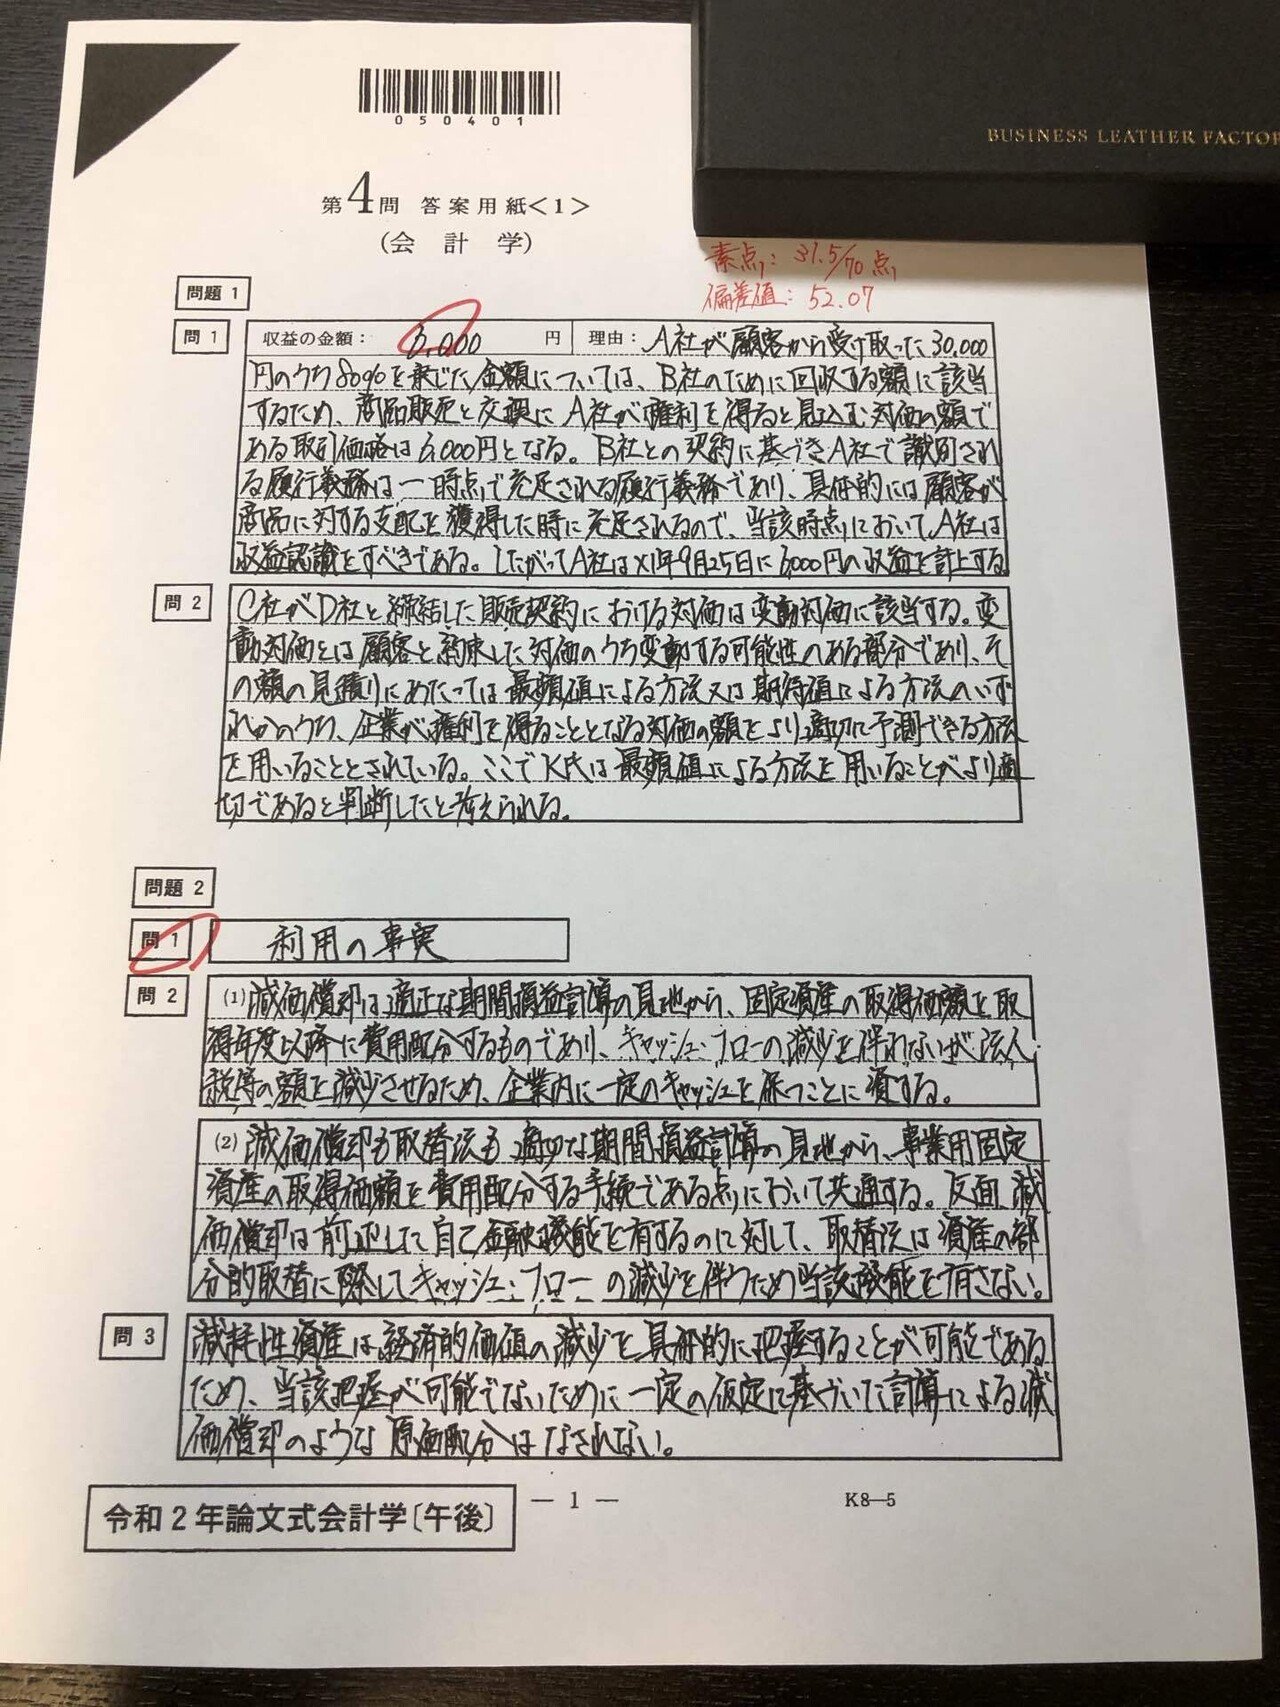 BUSINESS LEATHER FACTOR
050401
第4問 答案用紙<1>
(会計学)
素点: 31.5/70点
偏差値: 52.07
問題 1
問 1
収益の金額: 6,000 円 理由: A社が顧客から受け取った30,000
円のうち80%を乗じた金額については、B社のために回収する額に該当
するため、商品販売と交換にA社が権利を得ると見込む対価の額で
ある取引価格は6,000円となる。B社との契約に基づきA社で識別され
る履行義務は一時点で充足される履行義務であり、具体的には顧客が
商品に対する支配を獲得した時に充足されるので、当該時点においてA社は
収益認識をすべきである。したがってA社はX1年9月25日に6,000円の収益を計上する
問 2
C社がD社と締結した販売契約における対価は変動対価に該当する。変
動対価とは顧客と約束した対価のうち変動する可能性のある部分であり、そ
の額の見積りにあたっては最頻値による方法又は期待値による方法のいず
れかのうち、企業が権利を得ることとなる対価の額をより適切に予測できる方法
を用いることとされている。ここでK氏は最頻値による方法を用いることがより適
切であると判断したと考えられる。
問題 2
問 1
利用の事実
問 2
(1) 減価償却は適正な期間損益計算の見地から、固定資産の取得価額を取
得年度以降に費用配分するものであり、キャッシュ・フローの減少を伴わないが法人
税等の額を減少させるため、企業内に一定のキャッシュを保つことに資する。
(2) 減価償却も取替法も適切な期間損益計算の見地から、事業用固定
資産の取得価額を費用配分する手続である点において共通する。反面、減
価償却は前述した自己金融機能を有するのに対して、取替法は資産の部
分的取替に際してキャッシュ・フローの減少を伴うため当該機能を有さない。
問 3
減耗性資産は経済的価値の減少を具体的に把握することが可能である
ため、当該把握が可能でないために一定の仮定に基づいた計算による減
価償却のような原価配分はなされない。
— 1 —
K8—5
令和2年論文式会計学〔午後〕